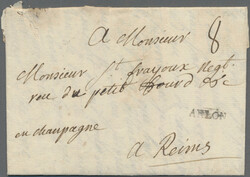 A Monsieur 8
Monsieur St frayoux Negt
rue du petit Bourd
ARLON
en champagne
A Reims